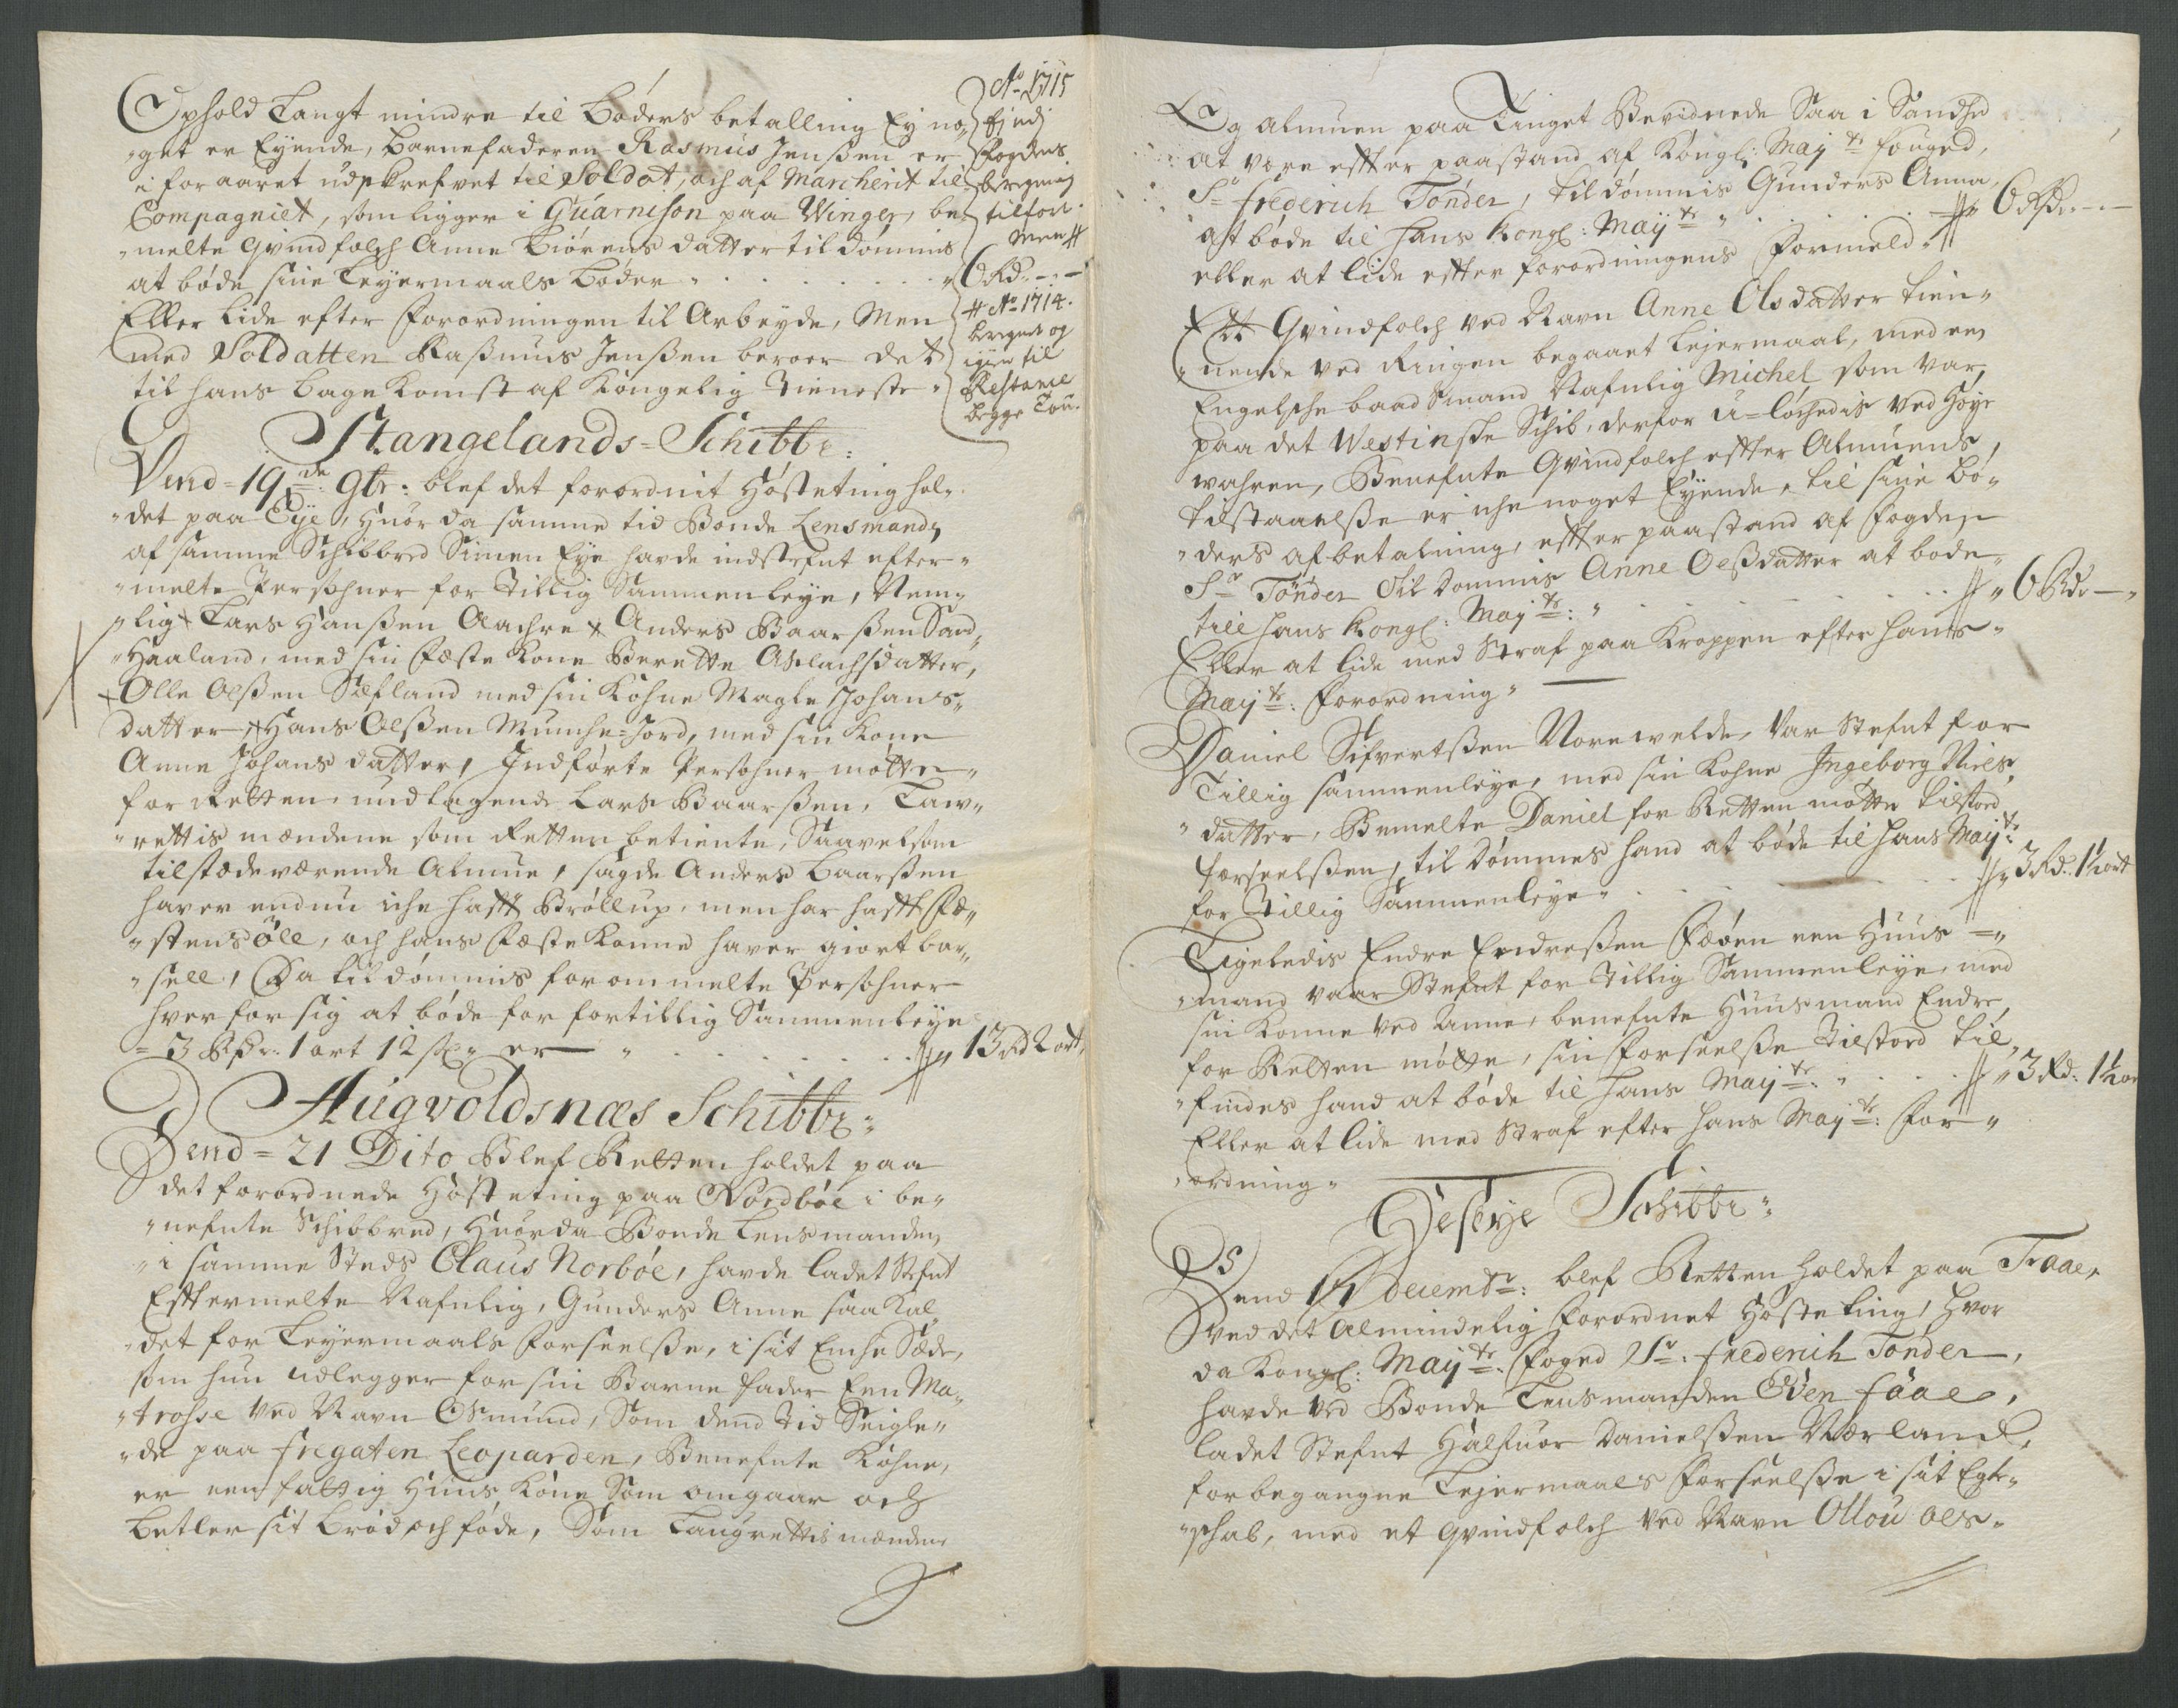 Ophold Langt mindre til Bøders betalling Ey no„
„get er Eyende, Barnefaderen Rasmus Jenßen er
i foraaret udskrefvet til Soldat, och af Marcherit til
Compagniet, som ligger i Guarnison paa Winger, be„
„melte Qvindfolch Anne Biørens datter til dømmis
at bøde sine Leyermaals Bøder „ . . . . . . „ 6 Rd. – . –
Eller Lide efter Forordningen til Arbeyde, Men
med Soldatten Rasmus Jenßen beroer det
til hans Bage komst af Kongelig Tieneste „
Ao 1715
Fogdens
beregning
tilført.
Men #
# Ao 1714.
beregnet og
igien til
Restance
begge Tou.
Stangelands-Schibbr:
Dend = 19de 9br: blef det forordnit Høsteting hol„
„det paa Eÿe, Huor da samme tid Bonde Lensmand
af samme Schibbred Simen Eÿe hafde indstefnt efter„
„melte Persohner for Tillig Sammenleye, Nem„
„lig Lars Hanßen Aachre x Anders Baarßen Sand„
„Haaland, med sin Fæste Kone Berette Aslachsdatter,
x Olle Olßen Sæfland med sin Kohne Magle Johans„
datter x Hans Olßen Munche-Jord, med sin Kone
Anne Johans datter, Indførte Persohner møtte„
for Retten undtagende Lars Baarßen, Law„
„rettis mændene som Retten betiente, Saavelsom
tilstædeværende Almue, sagde Anders Baarßen
haver endnu iche hafft Brøllup, men har hafft Fæ„
„stensøll, och hans Fæste Konne haver giort bar„
„sell, Da til dømmis forommelte Persohner
hver for sig at bøde for fortillig Sammenleye
= 3 Rdr. 1 ort 12 s: er „ . . . . . . „ 13 Rd 2 ort,
Augvoldsnæs Schibbr:
Dend = 21 Dito Blef Retten holdet paa
det forordnede Høsteting paa Nordbøe i be„
„nefnte Schibbred, Huorda Bonde Lensmanden
„i samme Steds Claus Norbøe, hafde ladet Stefnt
Efftermelte Nafnlig, Gunders Anne saa Kal„
„det for Leyermaals forseelße, i sit Enche Sæde,
som hun udlegger for sin Barne fader Een Ma„
„trosse Ved Nafn Osmund, Som dend Tid Seigle„
„de paa Fregaten Leoparden, Benefnte Kohne,
er een fattig Huus Kone Som omgaar och
betler sit brød och føde, Som Laugrettis mændene
Og almuen paa Tinget Bevidnede Saa i Sandhed
at vere effter paastand af Kongl: Mayts fouged,
Sr Frederich Tønder, tildømmis Gunders Anna,
at bøde til Hans Kongl: Maÿts „ . . . . . „ 6 Rdr. – . –
eller at lide effter forordningens Formeld.
Ett Qvindfolch ved Nafn Anne Olsdatter tien„
„nende ved Ringen begaaet Lejermaal, med en
Engelsche baadsmand Nafnlig Michel som var
paa det Westinske Schib, derfor u=løchedis ved Høye
wahren, Benefnte Qvindfolch effter Almuens
tilstaaelße er iche noget Eÿende, til sine Bø„
„ders afbetalning, effter paastand af Fogden
Sr Tønder Til Dommis Anne Olßdatter at bode
till hans Kongl: Mayts: „ . . . . . . „ 6 Rdr – „
Eller at lide med Straf paa Kroppen efter Hans„
Mayts: Forordning „
Daniel Sifvertßen Norewelde, Var Stefnt for
Tillig sammenleye, med sin Kohne Ingeborg Niels„
„datter, Bemelte Daniel for Retten møtte tilstoed
forseelßen, til Dømmes hand at bøde til Hans Mayts
for Tillig Sammenleye „ . . . . . . „ 3 Rd. 1½ ort
Ligeledis Endre Endreßen Fæøen een Huus =„
„mand vaar Stefnt for Tillig Sammenleye, med
sin Konne Ved Anne, benefnte Huusmand Endre,
for Retten møtte, sin Forseelße Tilstoed til„
„findes hand at bøde til Hans Mayts: „ . . . . „ 3 Rd. 1½ or
Eller at lide med Straf efter Hans Mayts: For„
„ordning „
Hesbye Schibbr:
Dend 17 decembr: blef Retten holdet paa Traae,
Ved det Almindelig forordnet Høsteting, hvor
da Kongl: Mayts: Foged Sr: Frederich Tønder,
hafde Ved Bonde Lensmanden Oden Faae,
ladet Stefnt Halfuor Danielßen Nærland,
for begangne Lejermaals Forseelße i sit Egte„
„schab, med et qvindfolch Ved Nafn Ollou Ols„